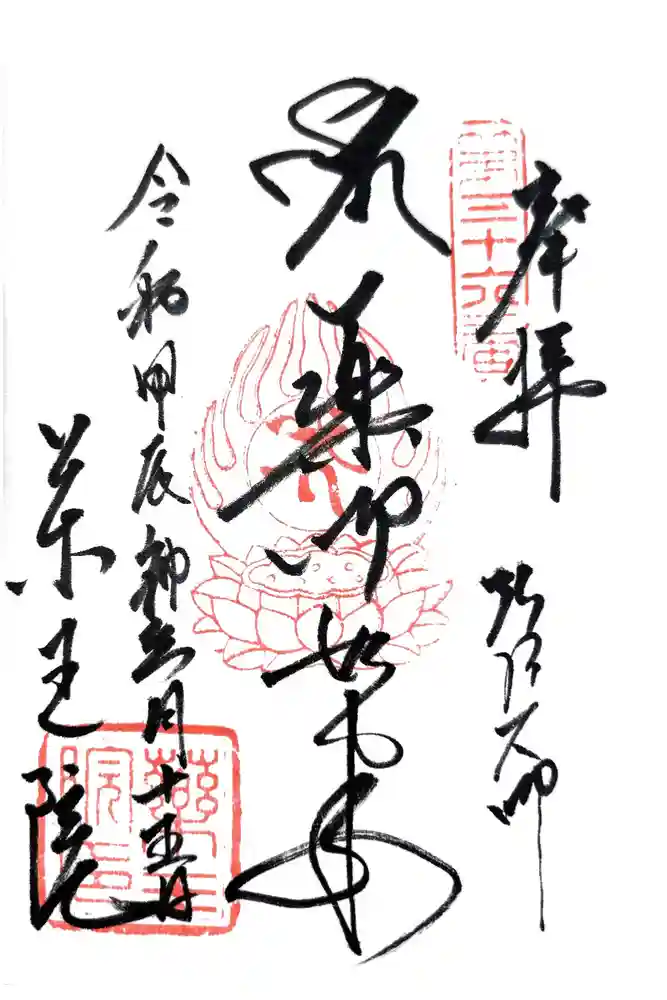 奉拝
弘法大師
三十六
薬師如来
令和甲辰神無月十五日
薬王院